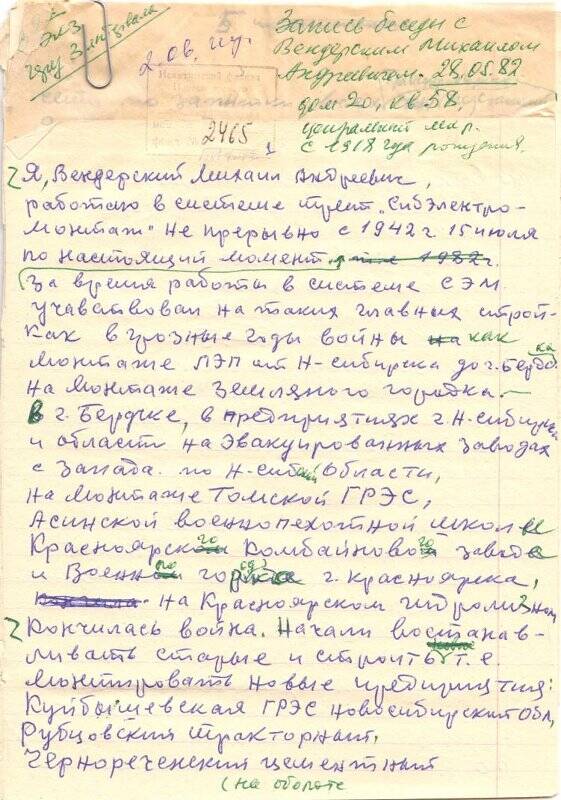 2.06.
Запись беседы с
Вендерским Михаилом
Андреевичем. 28.05.82
дом 20, кв 58,
с 1918 года рождения.
2465
1
Я, Вендерский Михаил Андреевич,
работаю в системе трест "Сибэлектро-
монтаж" не прерывно с 1942 г 15 июля
по настоящий момент. 1982 г.
За время работы в системе СЭМ
учавствовал на таких главных строй-
ках в грозные годы войны на как
монтаже ЛЭП от Н-сибирска до г. Бердска
на монтаже Земляного городка
в г. Бердске, в предприятиях г. Н-сибирска
и области на эвакуированных заводах
с Запада. по Н-сибкой области,
на монтаже Томской ГРЭС,
Асинской военнопехотной школы
Красноярского Комбайнового завода
и Военного городка г. Красноярска,
на Красноярском гидролизном
Кончилась война. Начали восстанав-
ливать старые и строить т.е.
монтировать новые предприятия:
Куйбышевская ГРЭС Новосибирской обл,
Рубцовский тракторный,
Чернореченский цементный
(на обороте